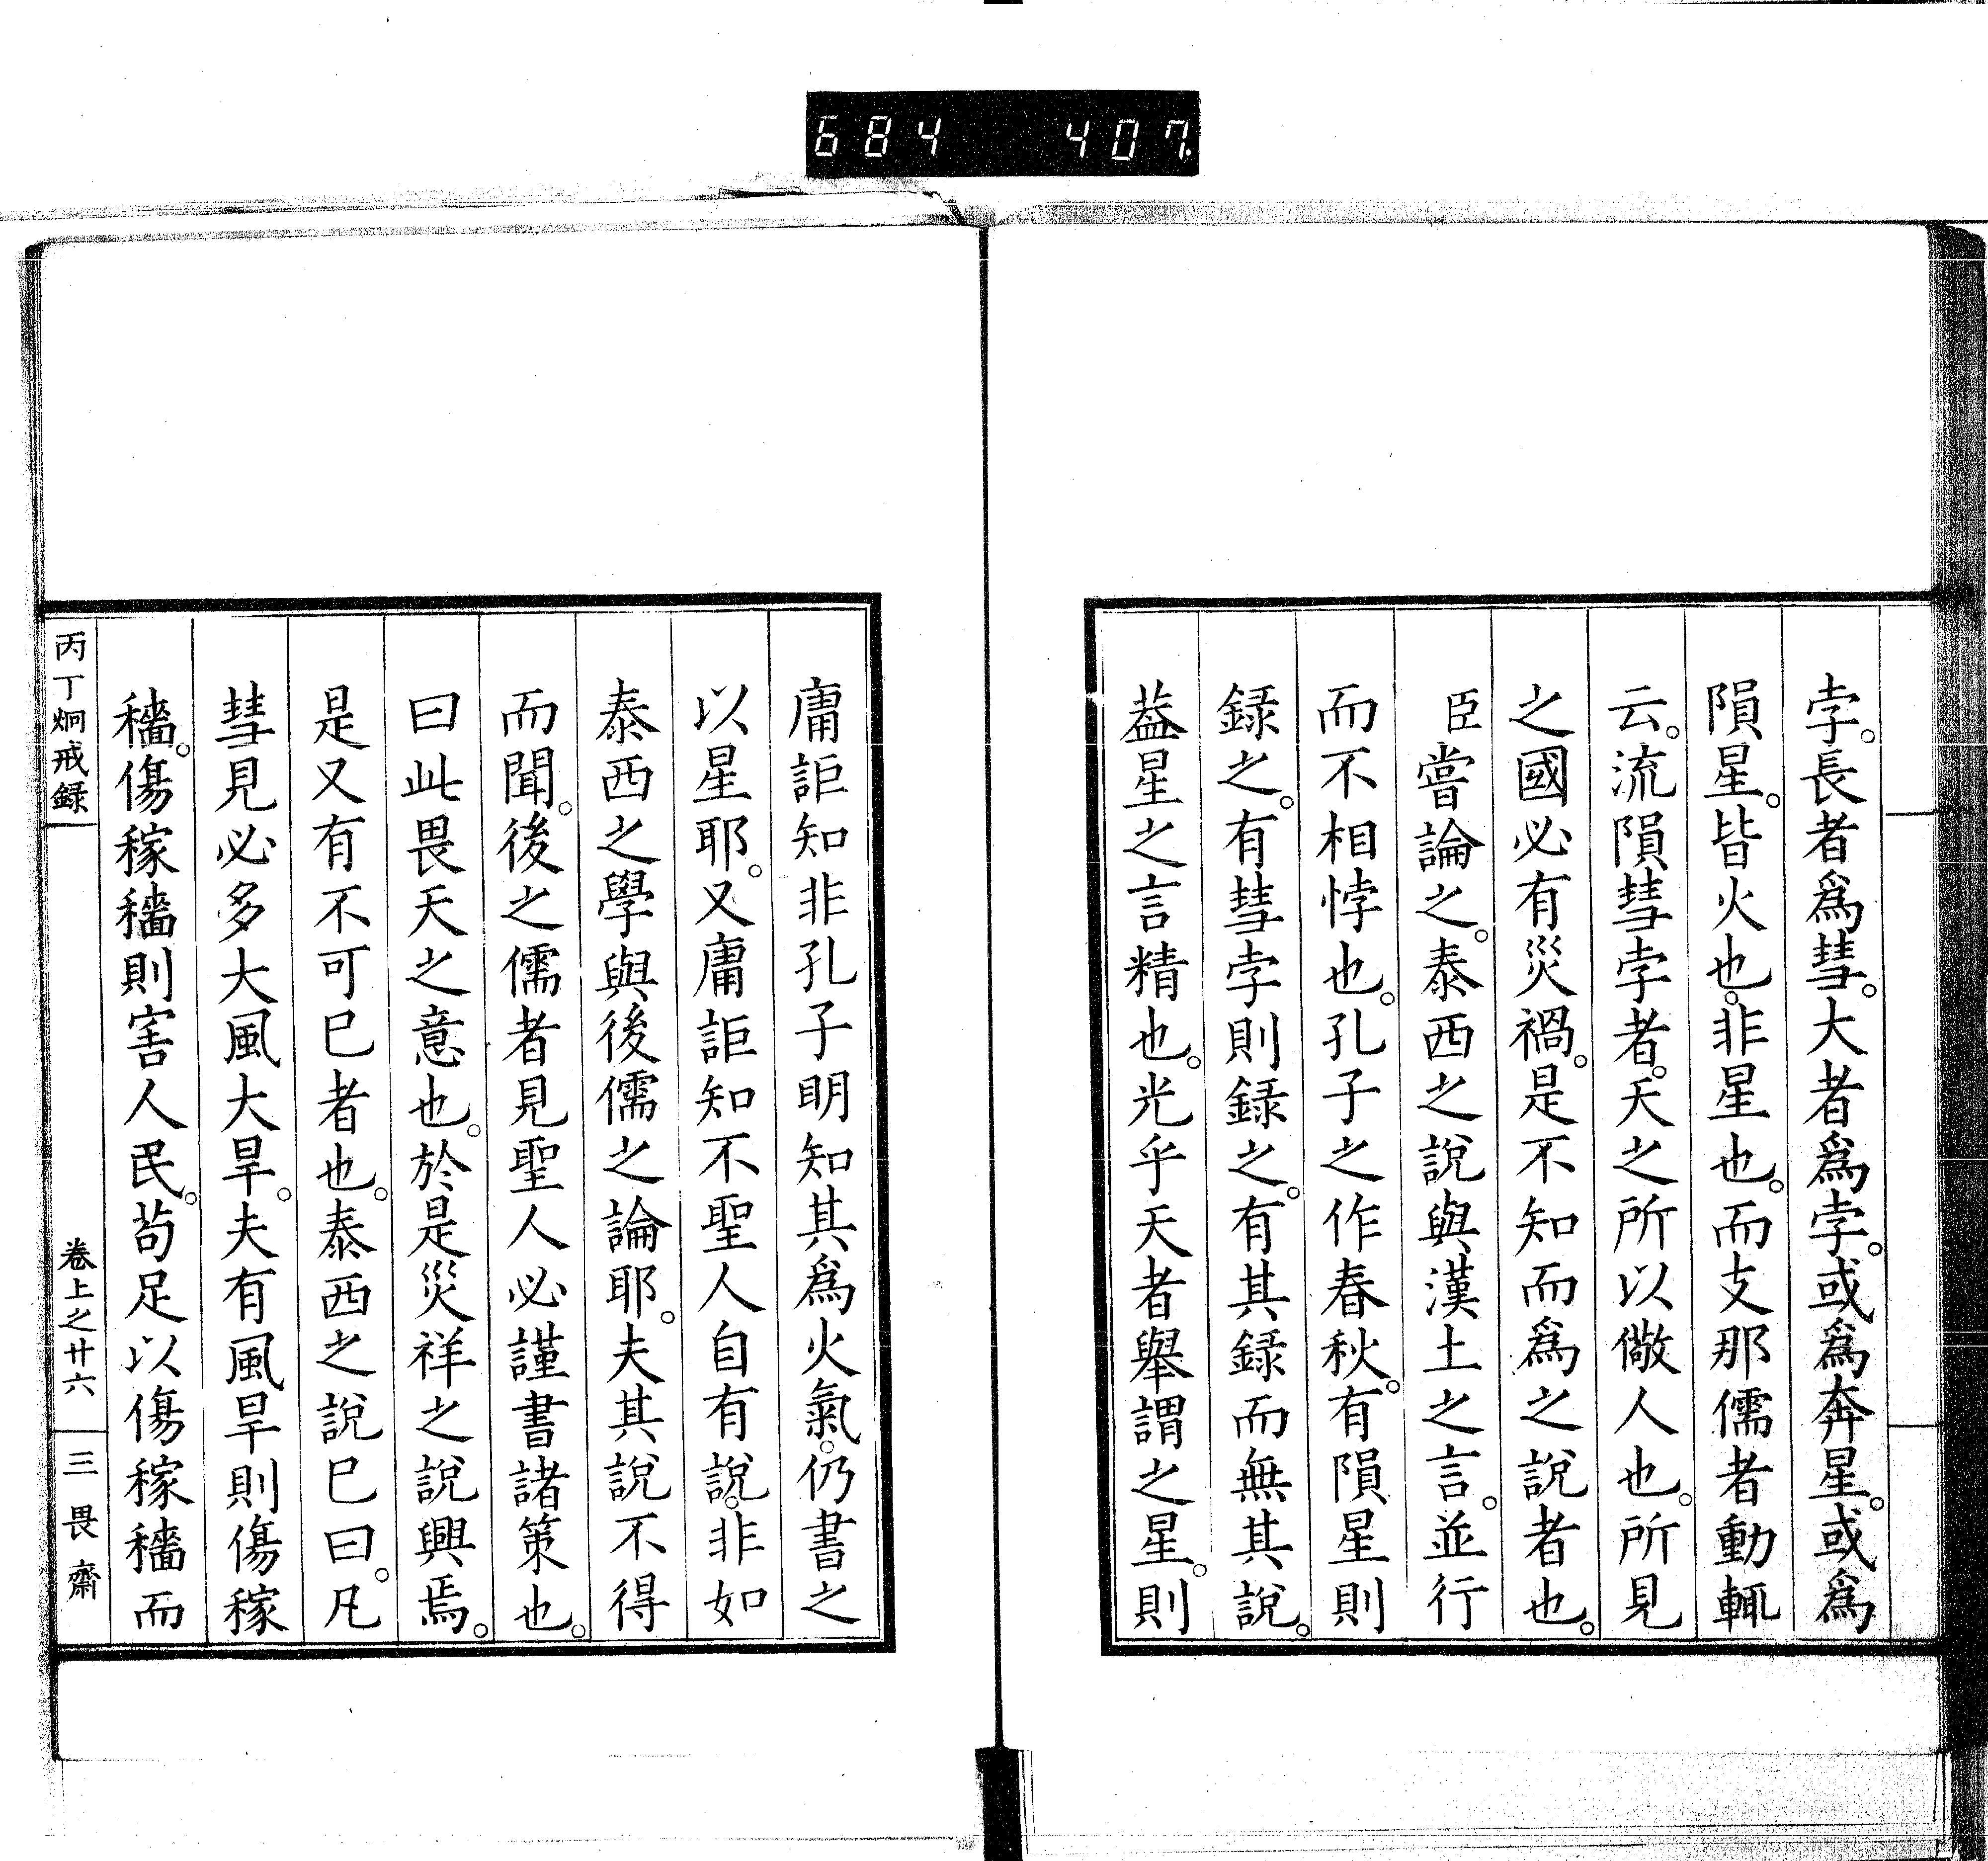 684 407
孛。長者爲彗。大者爲孛。或爲奔星。或爲
隕星。皆火也。非星也。而支那儒者動輒
云。流隕彗孛者。天之所以儆人也。所見
之國必有災禍。是不知而爲之說者也。
臣嘗論之。泰西之說與漢土之言。並行
而不相悖也。孔子之作春秋。有隕星則
録之。有彗孛則録之。有其録而無其說。
葢星之言精也。光乎天者舉謂之星。則
庸詎知非孔子明知其爲火氣。仍書之
以星耶。又庸詎知不聖人自有說。非如
泰西之學與後儒之論耶。夫其說不得
而聞。後之儒者見聖人必謹書諸策也。
曰此畏天之意也。於是災祥之說興焉。
是又有不可已者也。泰西之說已曰。凡
彗見必多大風大旱。夫有風旱則傷稼
穡。傷稼穡則害人民。苟足以傷稼穡而
丙丁炯戒録
卷上之廿六
三畏齋